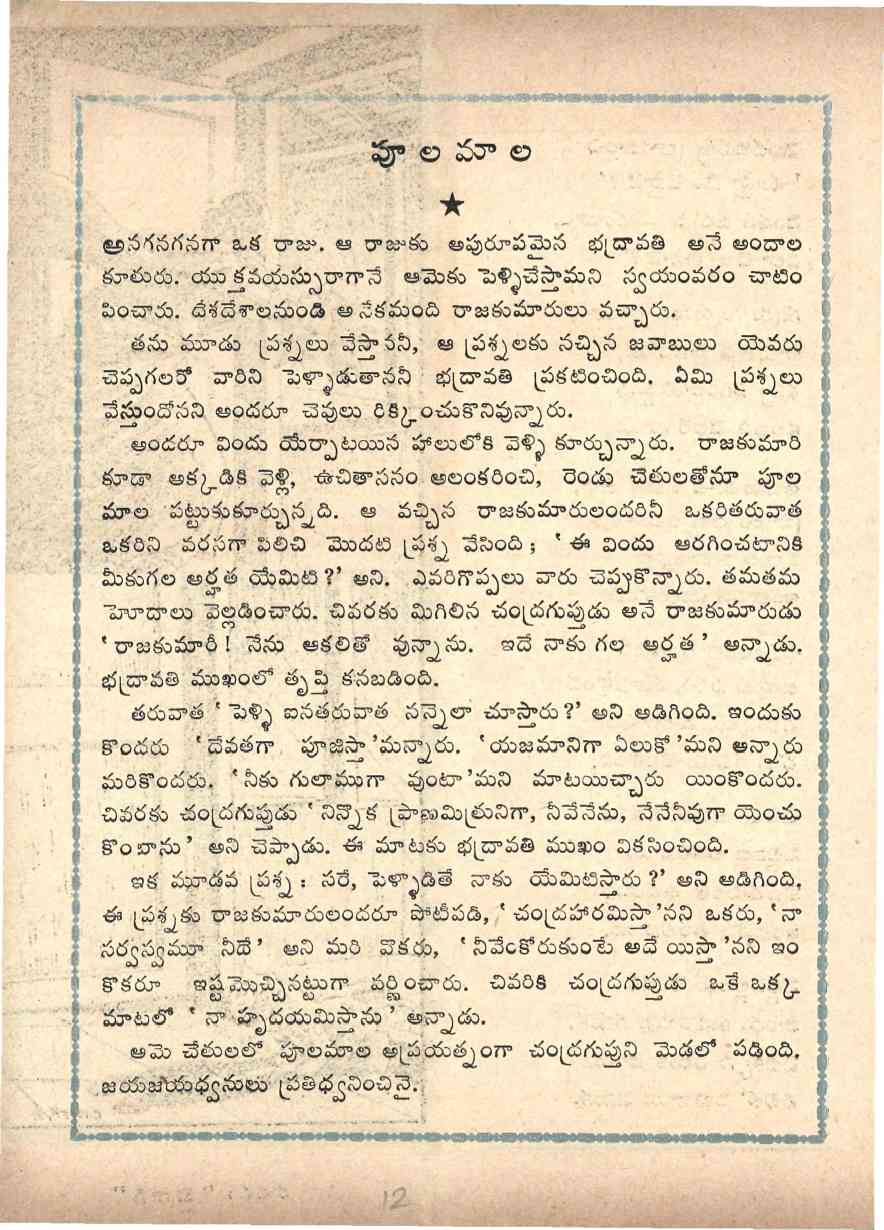 పూ ల మా ల
★
అనగనగనగా ఒక రాజు. ఆ రాజుకు అపురూపమైన భద్రావతి అనే అందాల
కూతురు. యుక్తవయస్సురాగానే ఆమెకు పెళ్ళిచేస్తామని స్వయంవరం చాటిం
పించారు. దేశదేశాలనుండి అనేకమంది రాజకుమారులు వచ్చారు.
తను మూడు ప్రశ్నలు వేస్తాననీ, ఆ ప్రశ్నలకు నచ్చిన జవాబులు యెవరు
చెప్పగలరో వారిని పెళ్ళాడుతాననీ భద్రావతి ప్రకటించింది. ఏమి ప్రశ్నలు
వేస్తుందోనని అందరూ చెవులు రిక్కించుకొనివున్నారు.
అందరూ విందు యేర్పాటయిన హాలులోకి వెళ్ళి కూర్చున్నారు. రాజకుమారి
కూడా అక్కడికి వెళ్లి, ఉచితాసనం అలంకరించి, రెండు చేతులతోనూ పూల
మాల పట్టుకుకూర్చున్నది. ఆ వచ్చిన రాజకుమారులందరినీ ఒకరితరువాత
ఒకరిని వరసగా పిలిచి మొదటి ప్రశ్న వేసింది; ‘ ఈ విందు ఆరగించటానికి
మీకుగల అర్హత యేమిటి?’ అని. ఎవరిగొప్పలు వారు చెప్పుకొన్నారు. తమతమ
హెూదాలు వెల్లడించారు. చివరకు మిగిలిన చంద్రగుప్తుడు అనే రాజకుమారుడు
‘ రాజకుమారీ! నేను ఆకలితో వున్నాను. ఇదే నాకు గల అర్హత ’ అన్నాడు.
భద్రావతి ముఖంలో తృప్తి కనబడింది.
తరువాత ‘ పెళ్ళి ఐనతరువాత నన్నెలా చూస్తారు?’ అని అడిగింది. ఇందుకు
కొందరు ‘దేవతగా పూజిస్తా’మన్నారు. ‘యజమానిగా ఏలుకో’మని అన్నారు
మరికొందరు. ‘నీకు గులాముగా వుంటా’మని మాటయిచ్చారు యింకొందరు.
చివరకు చంద్రగుప్తుడు ‘ నిన్నొక ప్రాణమిత్రునిగా, నీవేనేను, నేనేనీవుగా యెంచు
కొంటాను’ అని చెప్పాడు. ఈ మాటకు భద్రావతి ముఖం వికసించింది.
ఇక మూడవ ప్రశ్న : సరే, పెళ్ళాడితే నాకు యేమిటిస్తారు?’ అని అడిగింది.
ఈ ప్రశ్నకు రాజకుమారులందరూ పోటీపడి, ‘ చంద్రహారమిస్తా’నని ఒకరు, ‘నా
సర్వస్వమూ నీదే’ అని మరి వొకరు, ‘నీవేంకోరుకుంటే అదే యిస్తా’నని ఇం
కొకరూ ఇష్టమొచ్చినట్టుగా వర్ణించారు. చివరికి చంద్రగుప్తుడు ఒకే ఒక్క
మాటలో ‘ నా హృదయమిస్తాను ’ అన్నాడు.
ఆమె చేతులలో పూలమాల అప్రయత్నంగా చంద్రగుప్తుని మెడలో పడింది.
జయజయధ్వనులు ప్రతిధ్వనించినై.
12